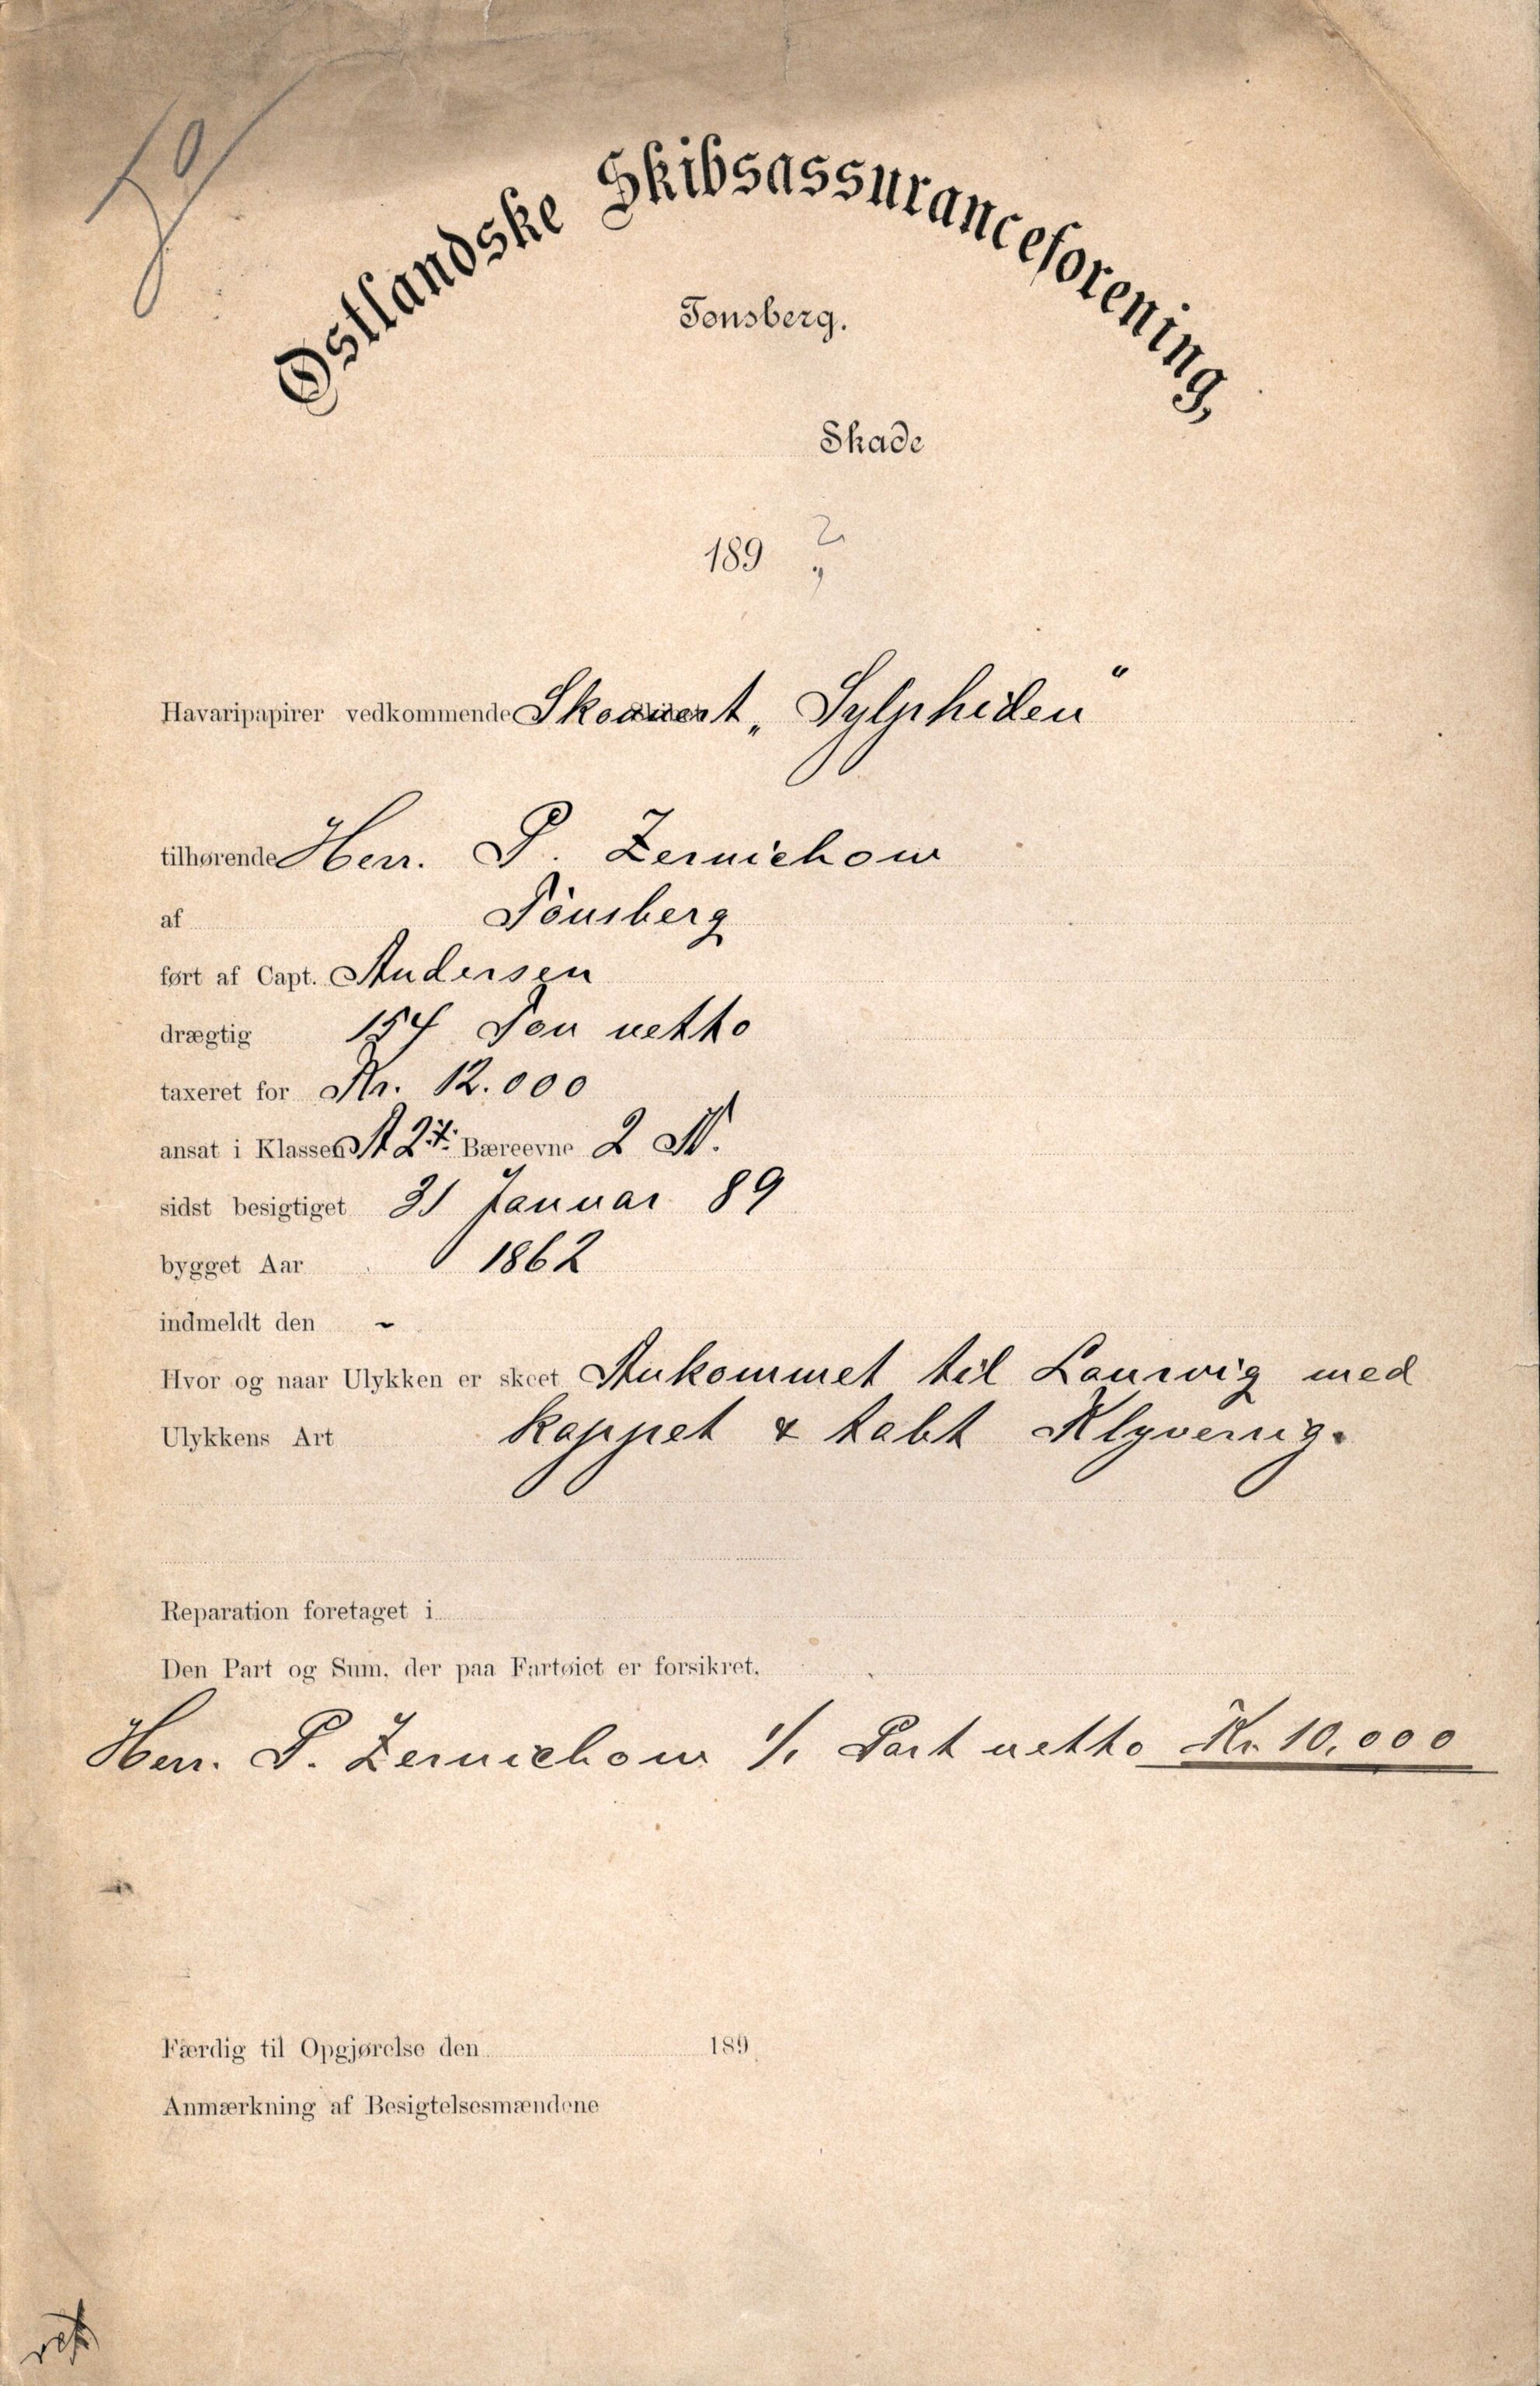 Østlandske Skibsassuranceforening,
Tønsberg.
Skade
189
Havaripapirer vedkommende Skonnert „Sylphiden“
tilhørende Herr. P. Zernichow
af Tönsberg
ført af Capt. Andersen
drægtig 154 Ton netto
taxeret for Kr. 12.000
ansat i Klassen A 2 Bæreevne 2 N.
sidst besigtiget 31 Januar 89
bygget Aar 1862
indmeldt den ~
Hvor og naar Ulykken er skeet Ankommet til Laurvig med
Ulykkens Art kappet & tabt Klyverrig.
Reparation foretaget i
Den Part og Sum, der paa Fartøiet er forsikret,
Herr. P. Zernichow 1/1 Part netto Kr. 10,000
Færdig til Opgjørelse den 189
Anmærkning af Besigtelsesmændene